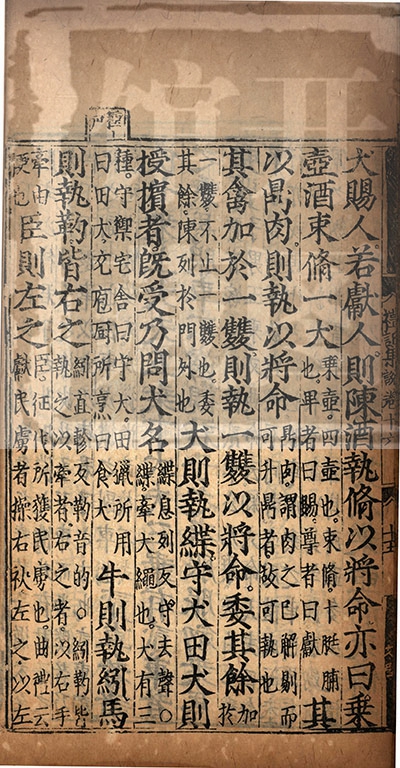 犬賜人若獻人則陳酒執脩以將命亦曰乗
壺酒束脩一犬乗壺四壺也束脩十脡脯也卑者曰賜尊者曰獻其
以鼎肉則執以將命鼎肉謂肉之已解剔而可升鼎者故可執也
其禽加於一雙則執一雙以將命委其餘加於
一雙不止一雙也委其餘陳列於門外也犬則執緤守犬田犬則
授擯者旣受乃問犬名緤息列反守去聲○緤牽犬繩也犬有三
種守禦宅舍曰守犬田獵所用曰田犬充庖厨所烹曰食犬牛則執紖馬
則執靮皆右之紖直軫反靮音的○紖靮皆執之以牽者右之者以右手
牽由便也臣則左之臣征伐所獲民虜也曲禮云獻民虜者操右袂左之以左